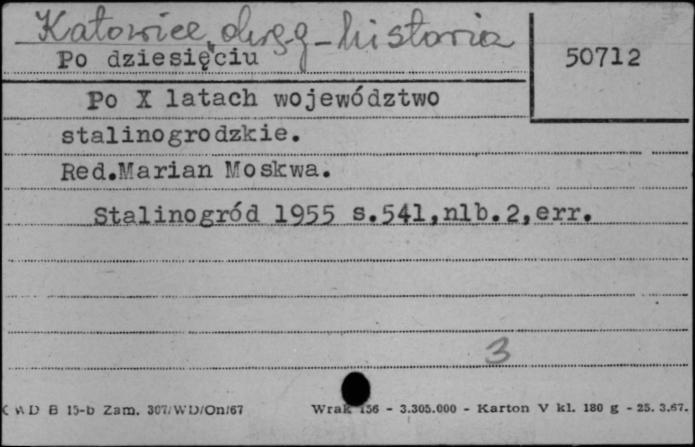 Katowice, okręg - historia
Po dziesięciu
50712
Po X latach województwo
stalinogrodzkie.
Red.Marian Moskwa.
Stalinogród 1955 s.541,nlb.2,err.
3
KWD B 15-b Zam. 307/WD/On/67
Wrak 156 - 3.305.000 - Karton V kl. 180 g - 25. 3.67.